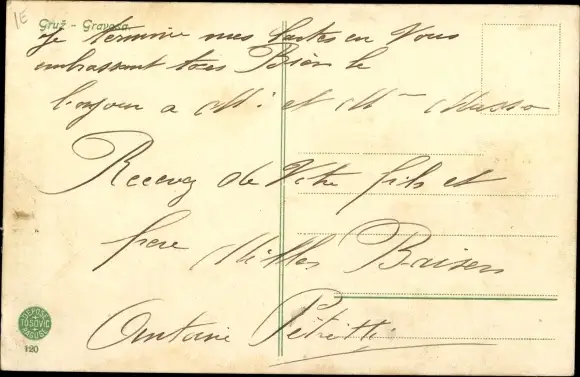 1E
Gruž - Gravosa
Je termine mes cartes en Vous
embrassant tous Bien le
bonjour a Mr. et Mme Musso
Recevez de Votre fils et
frere Milles Baisers
Antoine Petretti
DEPOSE
TOŠOVIĆ
RAGUSE
120